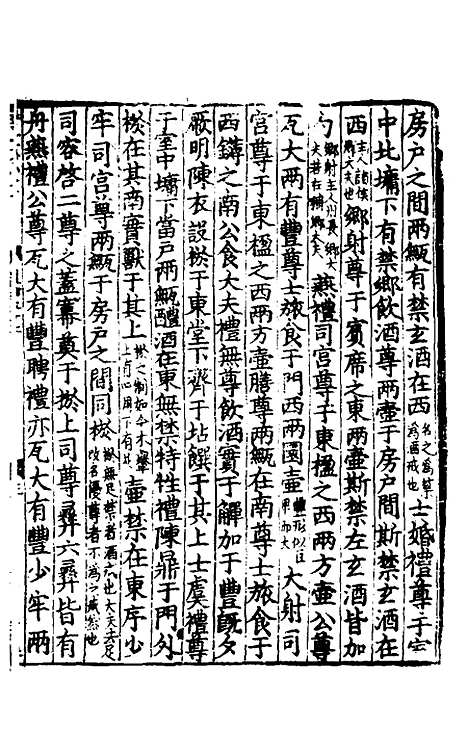 房户之間兩甒有禁玄酒在西名之為禁為酒戒也士婚禮尊于室
中北墉下有禁鄉飲酒尊兩壷于房戶間斯禁玄酒在
西主人諸侯鄉大夫也鄉射尊于賓席之東兩壷斯禁左玄酒皆加
勺鄉射主人州長鄉大夫若在鄉大夫燕禮司宮尊于東楹之西兩方壷公尊
瓦大兩有豐尊士旅食于門西兩圜壷豐形似豆卑而大大射司
宮尊于東楹之西兩方壷膳尊兩甒在南尊士旅食于
西鑮之南公食大夫禮無尊飲酒實于觶加于豐既夕
厥明陳衣設棜于東堂下齊于坫饌于其上士虞禮尊
于室中墉下當户兩甒醴酒在東無禁特牲禮陳鼎于門外
棜在其南實獸于其上棜之制如今木轝上有四周下有壷禁在東序少
牢司宮尊兩甒于房户之間同棜棜無足禁者酒戒也大夫去足改名優尊者不為之戒然也
司宮啓二尊之蓋冪奠于棜上司尊彝六彝皆有
舟燕禮公尊瓦大有豐聘禮亦瓦大有豐少牢兩